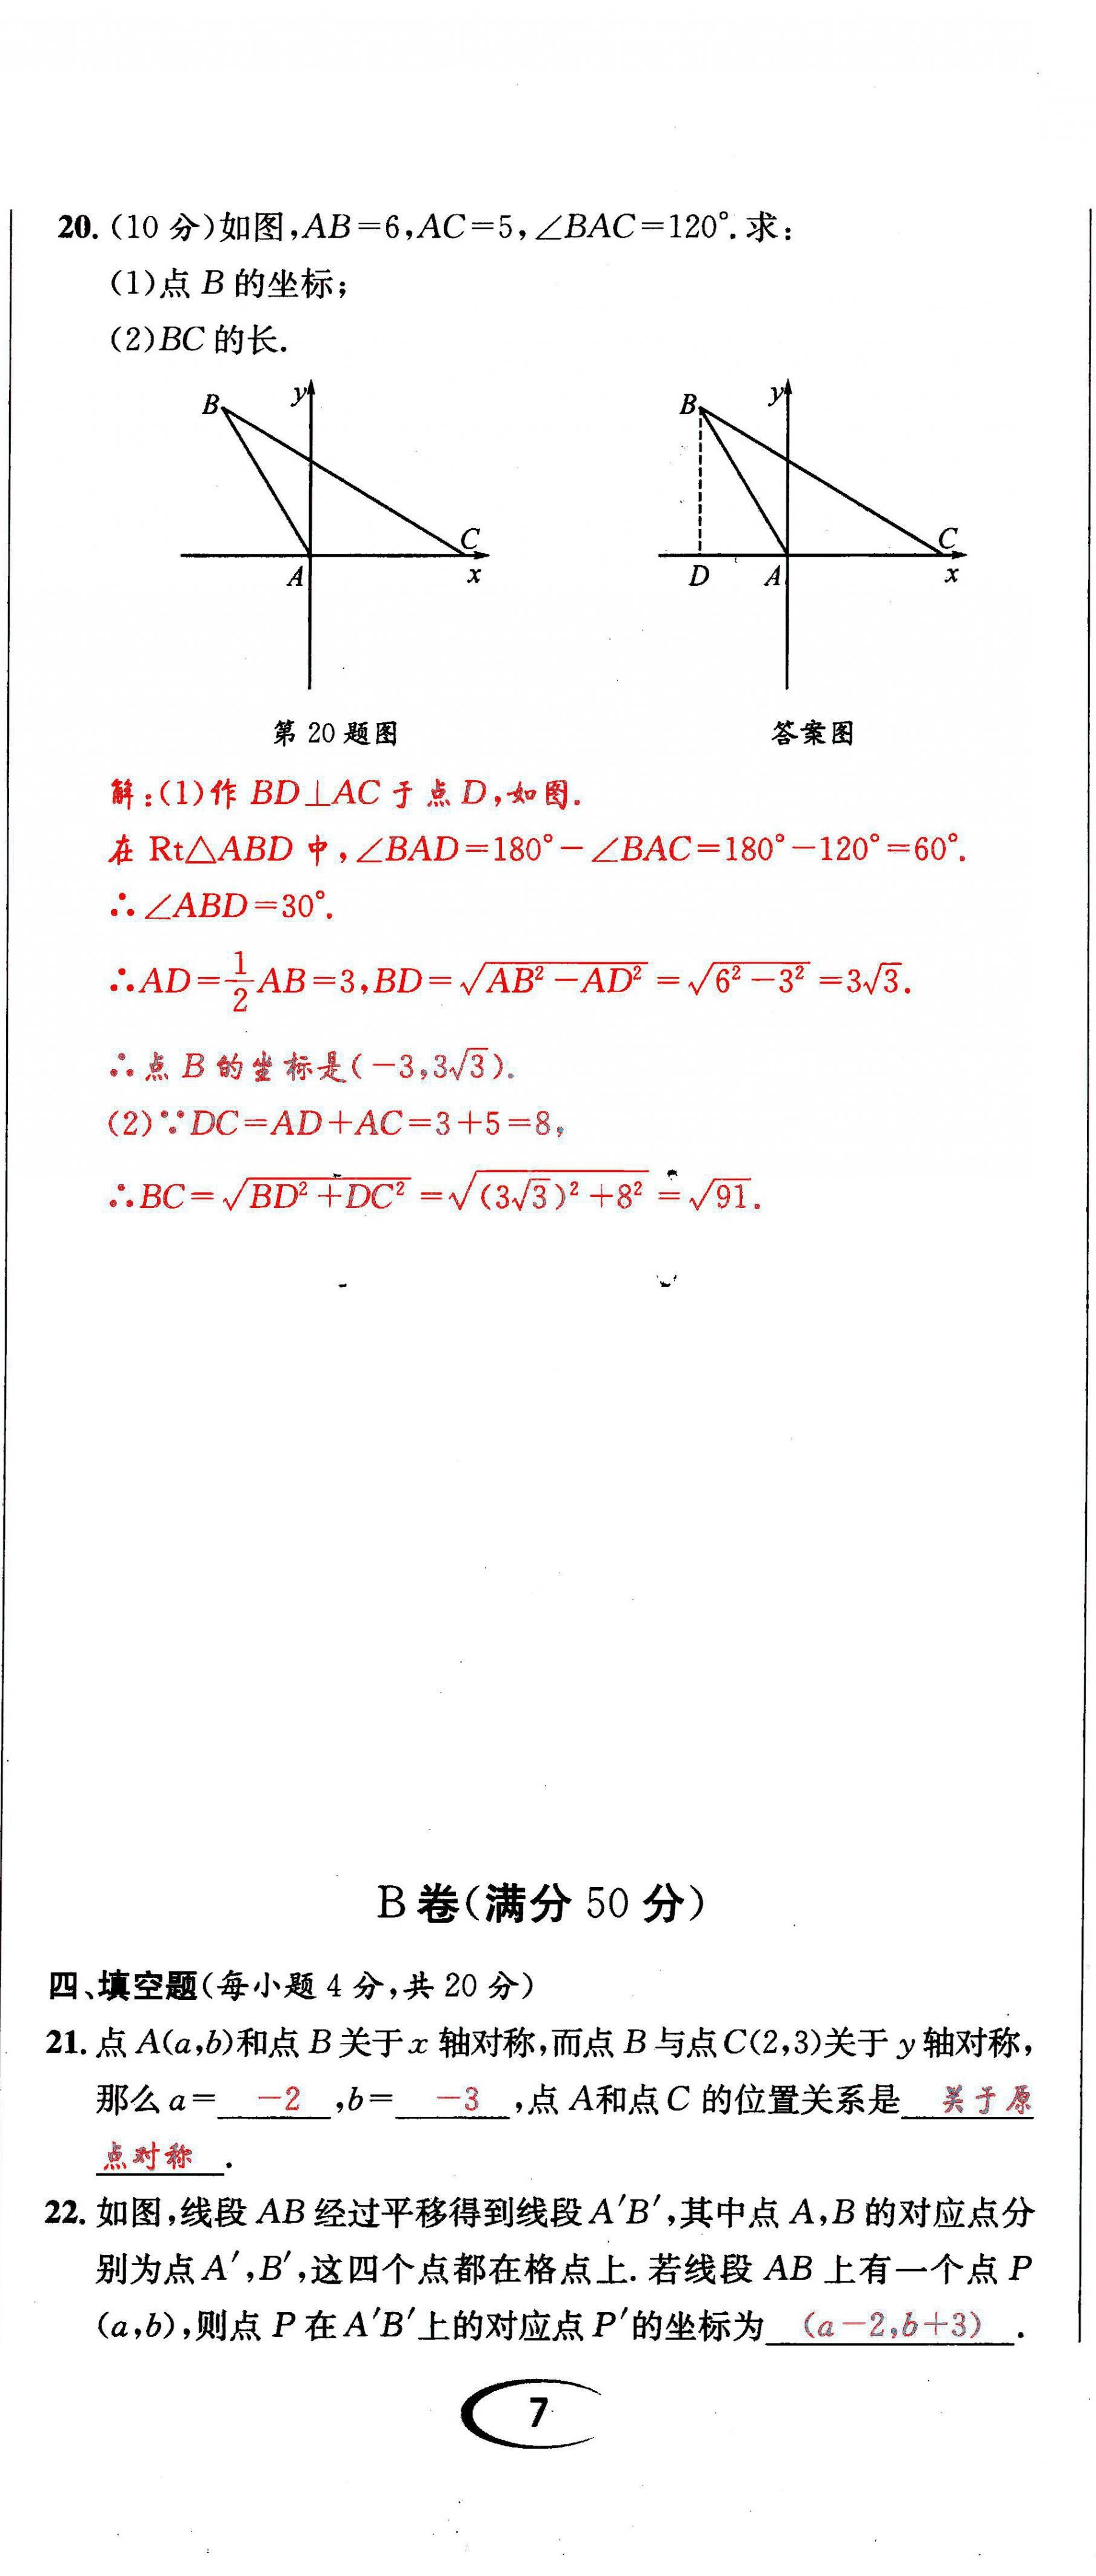 20. (10 分)如图,AB=6,AC=5,∠BAC=120°.求:
(1)点 B 的坐标;
(2)BC 的长.
B y C A x
B y C D A x
第 20 题图 答案图
解:(1)作 BD⊥AC 于点 D,如图.
在 Rt△ABD 中,∠BAD=180°-∠BAC=180°-120°=60°.
∴∠ABD=30°.
∴AD=1/2AB=3,BD=√(AB²-AD²)=√(6²-3²)=3√3.
∴点 B 的坐标是(-3,3√3).
(2)∵DC=AD+AC=3+5=8,
∴BC=√(BD²+DC²)=√((3√3)²+8²)=√91.
B 卷(满分 50 分)
四、填空题(每小题 4 分,共 20 分)
21. 点 A(a,b)和点 B 关于 x 轴对称,而点 B 与点 C(2,3)关于 y 轴对称,
那么 a= -2 ,b= -3 ,点 A和点 C 的位置关系是 关于原
点对称 .
22. 如图,线段 AB 经过平移得到线段 A′B′,其中点 A,B 的对应点分
别为点 A′,B′,这四个点都在格点上. 若线段 AB 上有一个点 P
(a,b),则点 P 在 A′B′上的对应点 P′的坐标为 (a-2,b+3) .
7